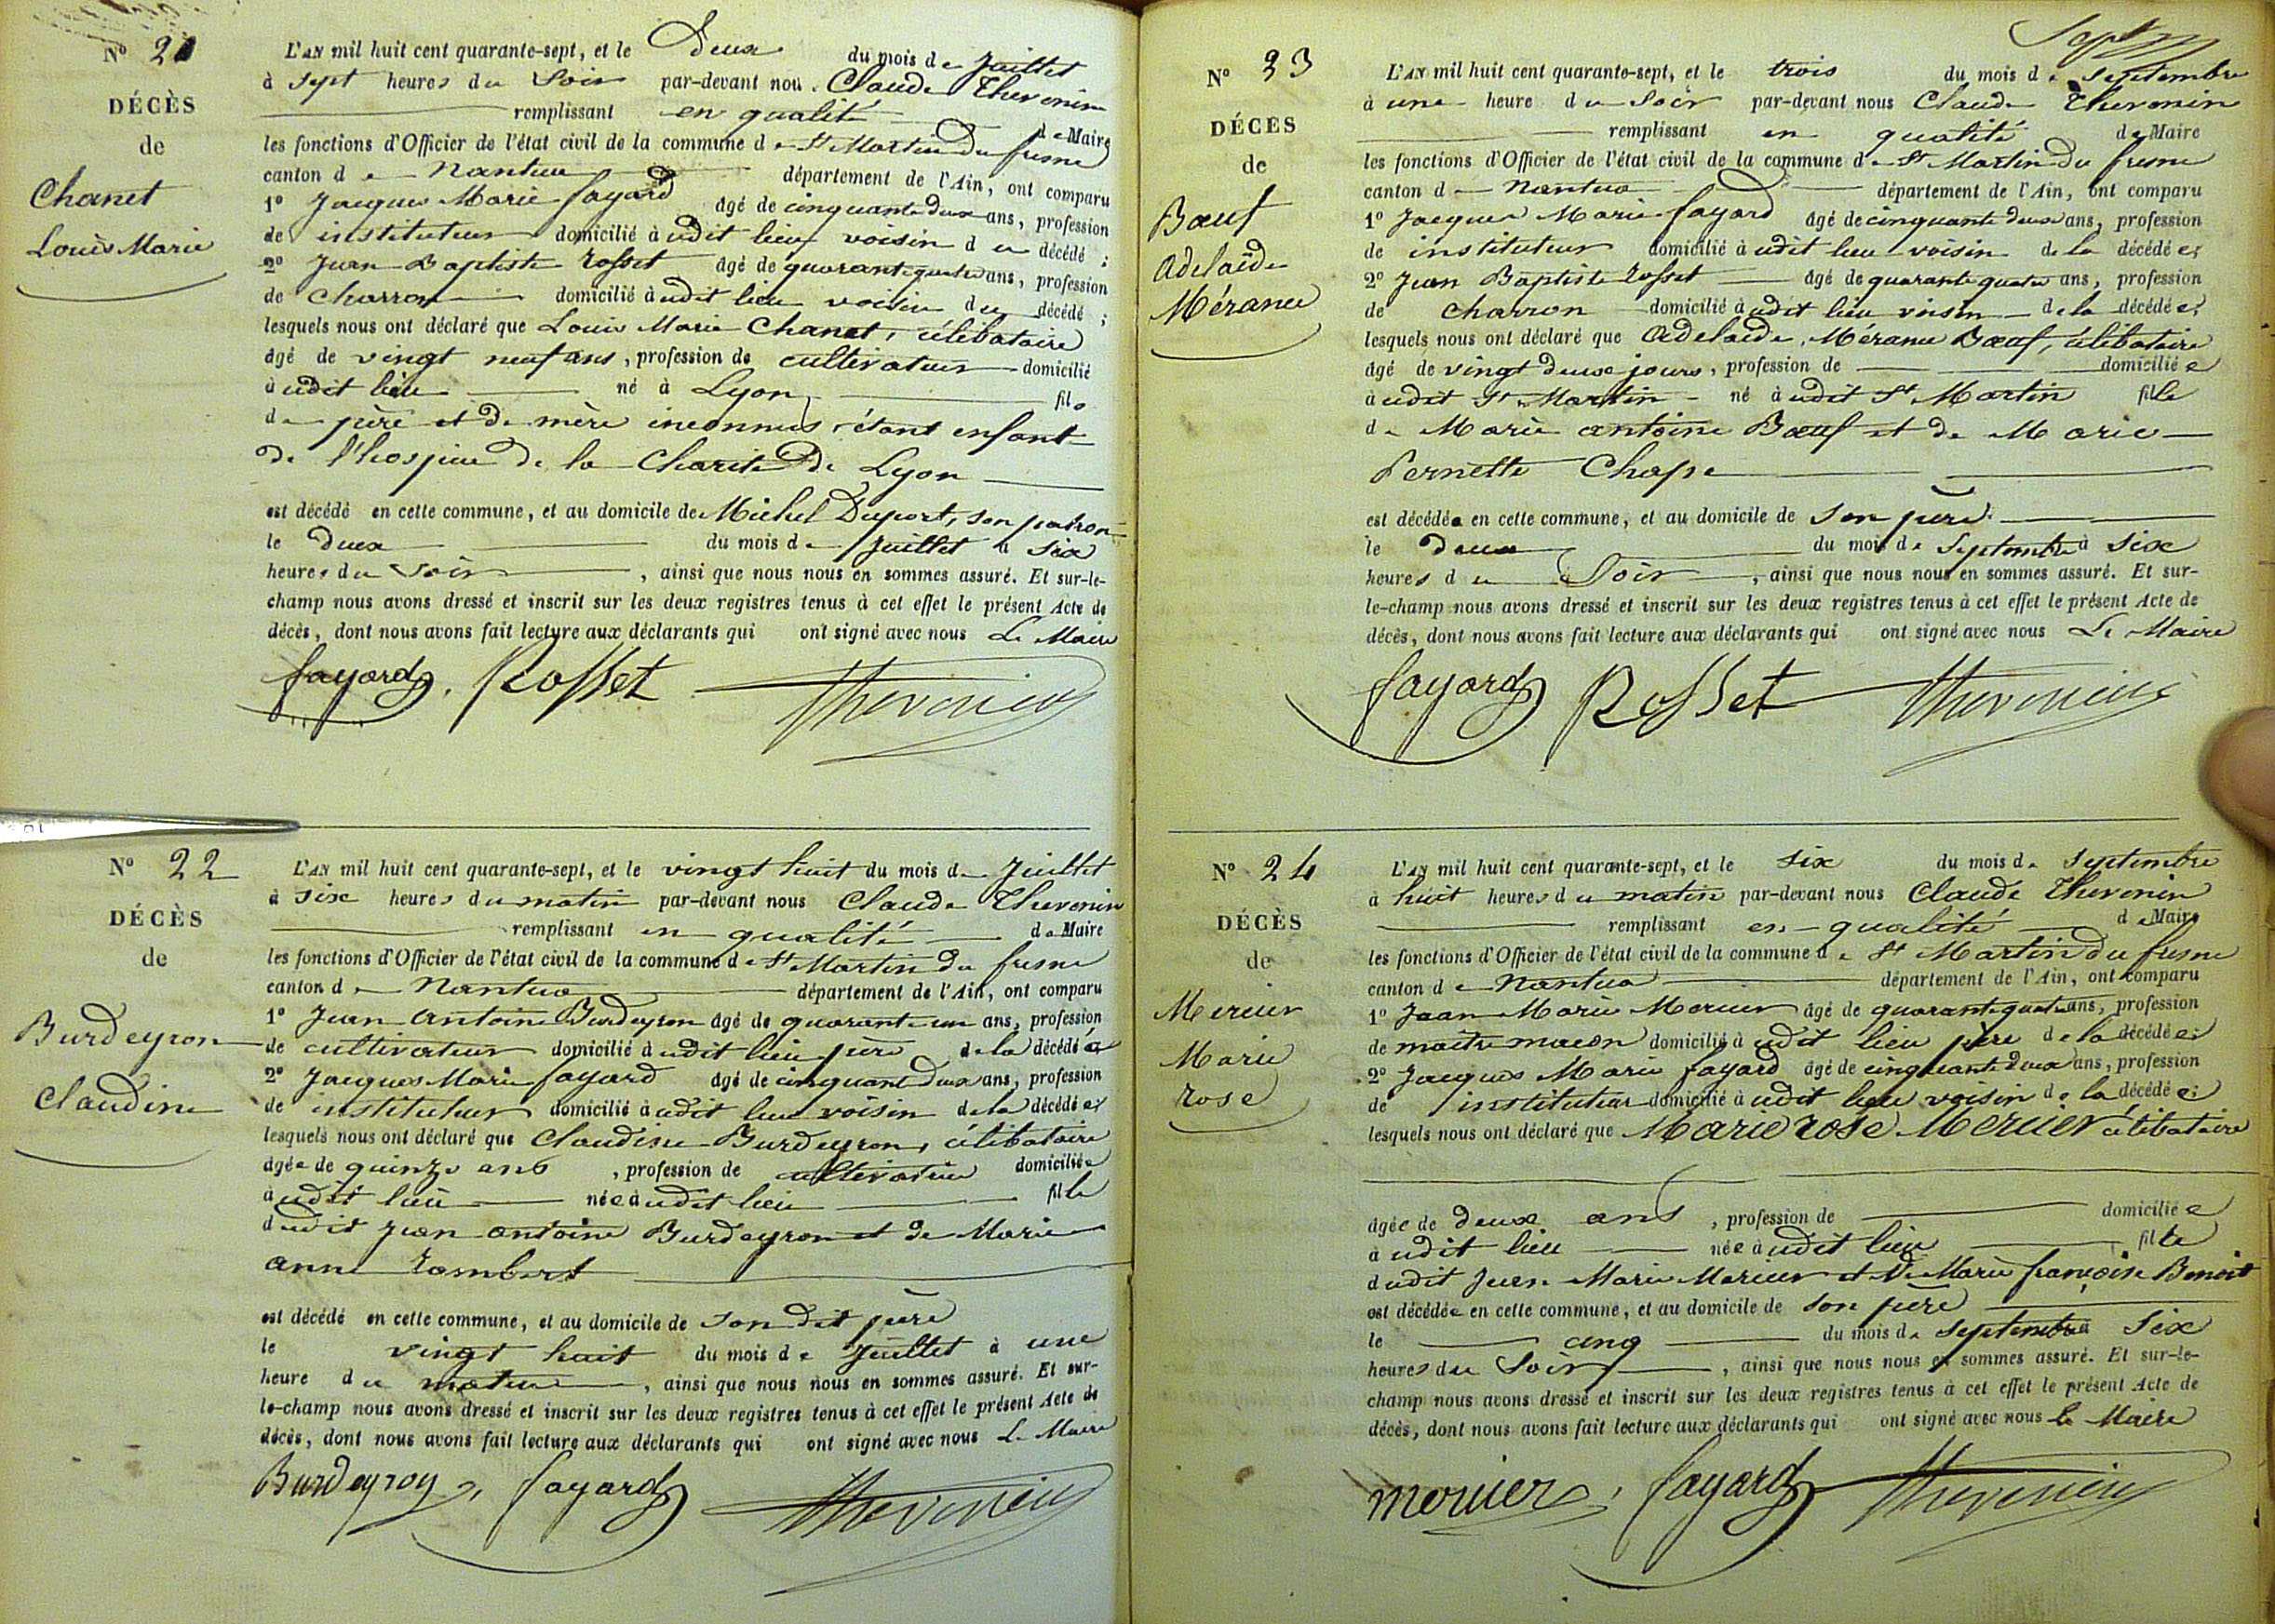 N° 21
DÉCÈS
de
Chanet
Louis Marie
L'AN mil huit cent quarante-sept, et le Deux du mois de Juillet
à sept heures du Soir par-devant nous Claude Thevenin
remplissant en qualité de Maire
les fonctions d'Officier de l'état civil de la commune de St Martin Du fresne
canton de Nantua département de l'Ain, ont comparu
1° Jacques Marie fayard âgé de cinquante deux ans, profession
de instituteur domicilié à udit lieu voisin du décédé ;
2° Jean Baptiste Rosset âgé de quarante quatre ans, profession
de charron domicilié à udit lieu voisin du décédé ;
lesquels nous ont déclaré que Louis Marie Chanet, célibataire
âgé de vingt neuf ans, profession de cultivateur domicilié
à udit lieu né à Lyon fils
de père et de mère inconnus, étant enfant
de l'hospice de la Charité De Lyon
est décédé en cette commune, et au domicile de Michel Duport, son patron
le Deux du mois de Juillet à six
heures du Soir, ainsi que nous nous en sommes assuré. Et sur-le-
champ nous avons dressé et inscrit sur les deux registres tenus à cet effet le présent Acte de
décès, dont nous avons fait lecture aux déclarants qui ont signé avec nous Le Maire
fayard. Rosset Thevenin
N° 22
DÉCÈS
de
Burdeyron
Claudine
L'AN mil huit cent quarante-sept, et le vingt huit du mois de Juillet
à six heures du matin par-devant nous Claude Thevenin
remplissant en qualité de Maire
les fonctions d'Officier de l'état civil de la commune de St Martin Du fresne
canton de Nantua département de l'Ain, ont comparu
1° Jean Antoine Burdeyron âgé de quarante un ans, profession
de cultivateur domicilié à udit lieu père de la décédée
2° Jacques Marie fayard âgé de cinquante Deux ans, profession
de instituteur domicilié à udit lieu voisin de la décédée;
lesquels nous ont déclaré que Claudine Burdeyron, célibataire
âgée de quinze ans, profession de cultivatrice domiciliée
à udit lieu née à udit lieu fille
dudit Jean Antoine Burdeyron et de Marie
Anne Rambert
est décédé en cette commune, et au domicile de son dit père
le vingt huit du mois de Juillet à une
heure du matin, ainsi que nous nous en sommes assuré. Et sur-
le-champ nous avons dressé et inscrit sur les deux registres tenus à cet effet le présent Acte de
décès, dont nous avons fait lecture aux déclarants qui ont signé avec nous Le Maire
Burdeyron, fayard Thevenin
N° 23
DÉCÈS
de
Bœuf
Adelaïde
Méranee
L'AN mil huit cent quarante-sept, et le trois du mois de Septembre
à une heure du Soir par-devant nous Claude Thevenin
remplissant en qualité de Maire
les fonctions d'Officier de l'état civil de la commune de St Martin Du fresne
canton de Nantua département de l'Ain, ont comparu
1° Jacques Marie fayard âgé de cinquante deux ans, profession
de instituteur domicilié à udit lieu voisin de la décédée;
2° Jean Baptiste Rosset âgé de quarante quatre ans, profession
de charron domicilié à udit lieu voisin de la décédée;
lesquels nous ont déclaré que Adelaïde, Méranee Bœuf, célibataire
âgé de vingt deux jours, profession de domiciliée
à udit St Martin né à udit St Martin fille
de Marie Antoine Bœuf et de Marie
Pernette Chape
est décédée en cette commune, et au domicile de son père.
le deux du mois de Septembre à six
heures du Soir, ainsi que nous nous en sommes assuré. Et sur-
le-champ nous avons dressé et inscrit sur les deux registres tenus à cet effet le présent Acte de
décès, dont nous avons fait lecture aux déclarants qui ont signé avec nous Le Maire
fayard Rosset Thevenin
N° 24
DÉCÈS
de
Mercier
Marie
Rose
L'AN mil huit cent quarante-sept, et le six du mois de Septembre
à huit heures du matin par-devant nous Claude Thevenin
remplissant en qualité de Maire
les fonctions d'Officier de l'état civil de la commune de St Martin Du fresne
canton de Nantua département de l'Ain, ont comparu
1° Jean Marie Mercier âgé de quarante quatre ans, profession
de maître macon domicilié à udit lieu père de la décédée;
2° Jacques Marie fayard âgé de cinquante deux ans, profession
de instituteur domicilié à udit lieu voisin de la décédée;
lesquels nous ont déclaré que Marie rose Mercier célibataire
âgée de deux ans, profession de domiciliée
à udit lieu née à udit lieu fille
dudit Jean Marie Mercier et de Marie françoise Benoit
est décédée en cette commune, et au domicile de son père
le cinq du mois de septembre à six
heures du Soir, ainsi que nous nous en sommes assuré. Et sur-le-
champ nous avons dressé et inscrit sur les deux registres tenus à cet effet le présent Acte de
décès, dont nous avons fait lecture aux déclarants qui ont signé avec nous le Maire
mercier, fayard Thevenin